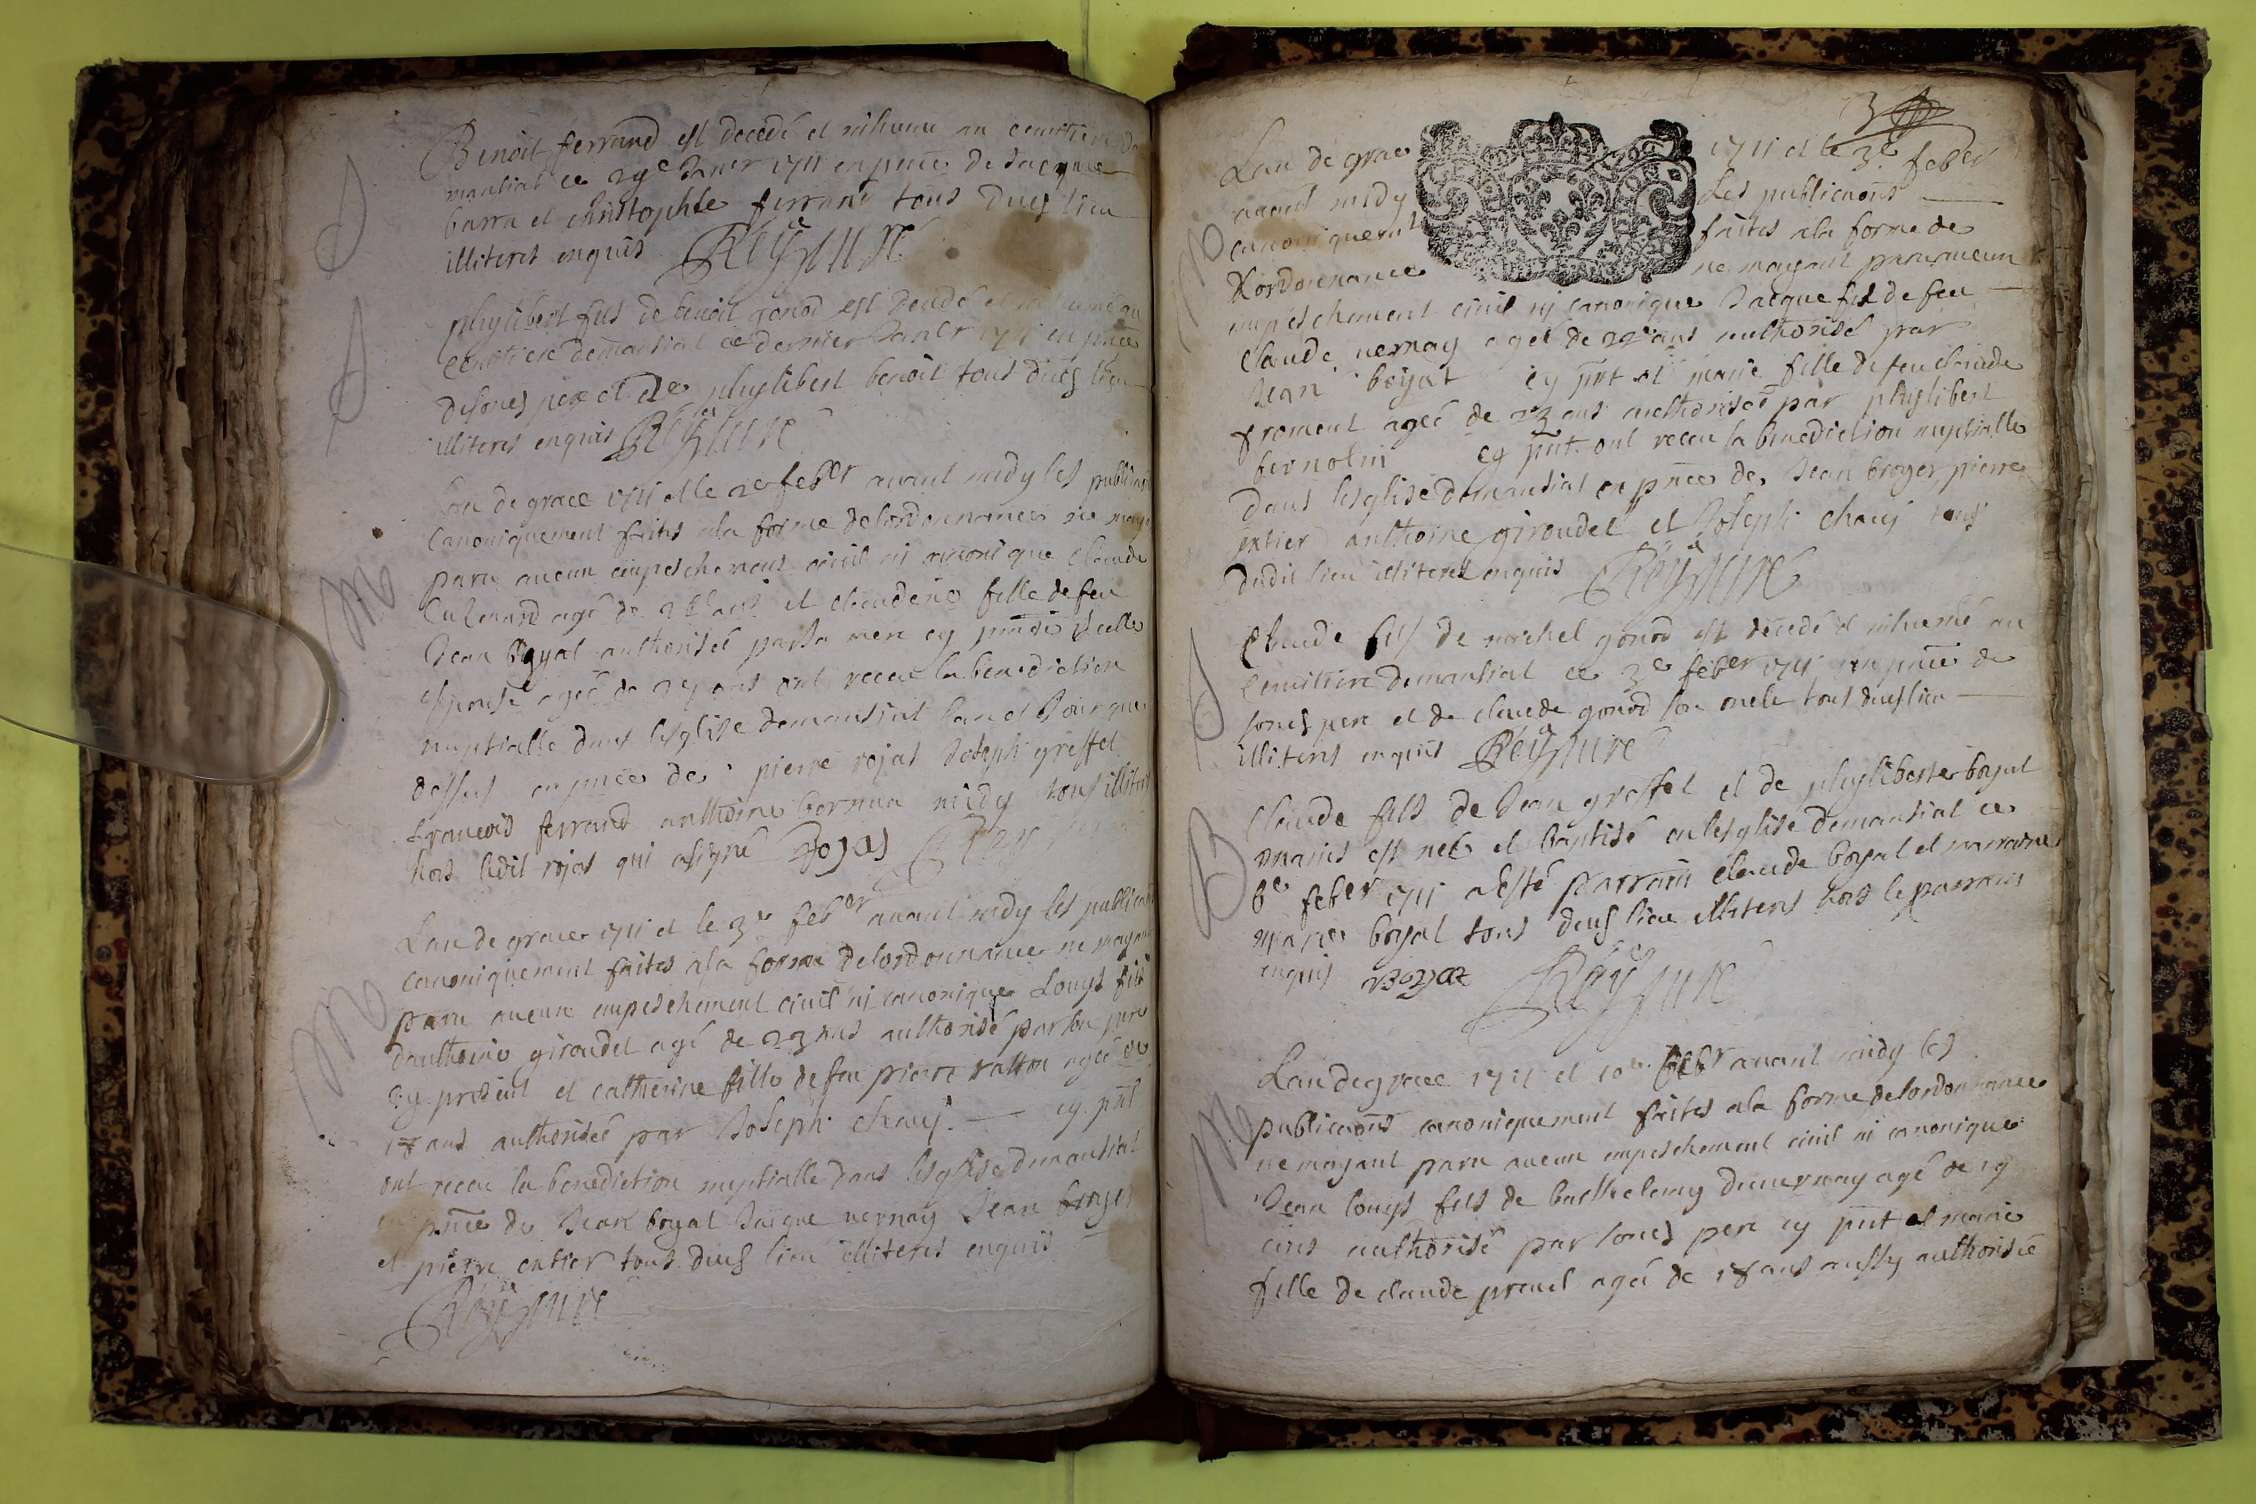 Benoit ferrand est decedé et inhumé au cemitiere de
mansiat ce 29e Janer 1711 en pnce de Jacque
barra et christophle ferrand tous dues lieu
illiteres enquis Rey Jure
D
phylibert fils de benoit gonod est decedé et inhumé au
cemitiere demansiat ce dernier Janer 1711 en pnce
desones pere et de phylibert benoit tous dues lieu
illiteres enquis Rey Jure
D
Lan de grace 1711 et le 2e feber avant midy les publicaons
canoniquement faites ala forme delordonnance ne mayant
paru aucun empeschement civil ni canonique Claude
agé de ans et claudene fille de feu
Jean boyat authorisée parsa mere cy pnte
agée de ans ont receu la benediction
nuptialle dans lesglise demansiat lan et Jour que
dessus en pnce de pierre rojas Joseph greffet
francois ferrand anthoine tous illiteres
hors ledit rojas qui asigné Rojas Rey
M
Lan de grace 1711 et le 3e feber avant midy les publicaons
canoniquement faites ala forme delordonnance ne mayant
paru aucun empeschement civil ni canonique Louys fils
danthoine giroudet agé de 23 ans authorisé parson pere
cy present et catherine fille de feu pierre ratton agée de
18 ans authorisée par Joseph chauj cy pnt
ont receu la benediction nuptialle dans lesglise demansiat
en pnce de Jean boyat Jacque vernay Jean broyer
et pierre entier tous dues lieu illiteres enquis
Rey Jure
M
3
Lan de grace 1711 et le 3e feber
avant midy les publicaons
canoniquement faites ala forme de
Lordonnance ne mayant paru aucun
empeschement civil ni canonique Jacque fils de feu
Claude vernay agé de 22 ans authorisé par
Jean boyat cy pnt et marie fille defeu claude
froment agée de 23 ans authorisée par phylibert
fernolin cy pnt ont receu la benediction nuptialle
dans lesglise demansiat en pnce de Jean broyer pierre
entier anthoine giroudet et Joseph chauj tous
dudit lieu illiteres enquis Rey Jure
M
Claude fils de michel gonod est decedé et inhumé au
cemitiere demansiat ce 3e feber 1711 en pnce de
sones pere et de claude gonod son oncle tous dues lieu
illiteres enquis Rey Jure
D
Claude fils de Jean greffet et de phyliberte boyat
mariés est neé et baptisé en lesglise demansiat ce
8e feber 1711 a esté parrain claude boyat et marraine
marie boyat tous dues lieu illiteres hors le parrain
enquis Boyat Rey Jure
B
Lan de grace 1711 et 10e feber avant midy les
publicaons canoniquement faites ala forme delordonnance
ne mayant paru aucun empeschement civil ni canonique
Jean louys fils de barthelemy duvernay agé de 19
ans authorisé par sones pere cy pnt et marie
fille de claude agée de 18 ans aussy authorisée
M